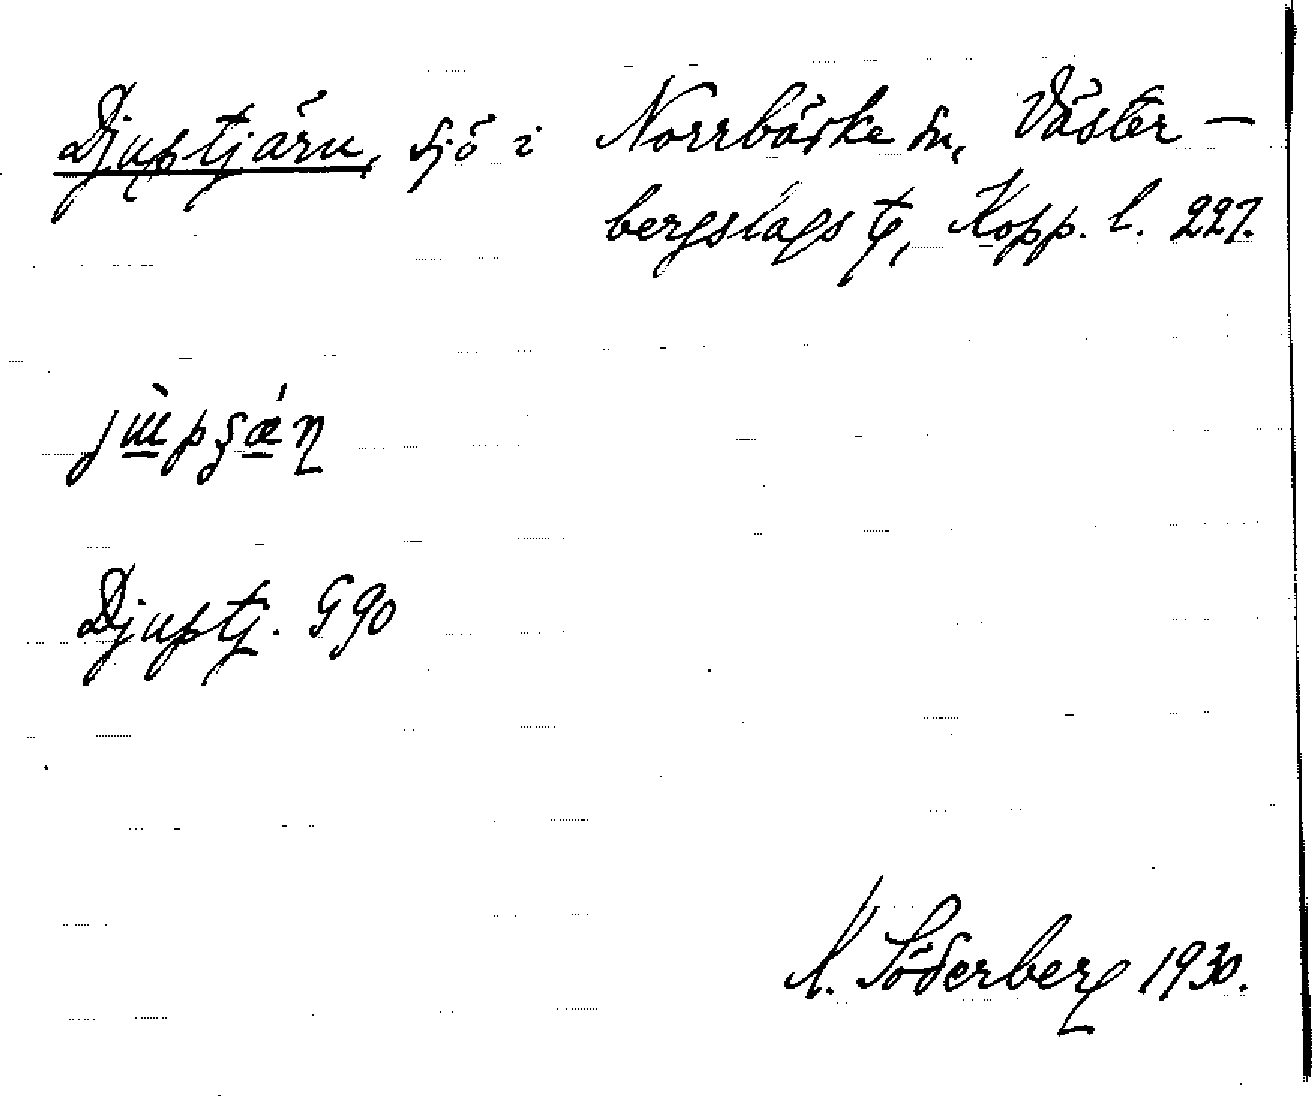 Djuptjärn, sjö i Norrbärke sn, Väster-
bergslags tg, Kopp. l. 227.
Djuptj. G90
Söderberg 1930.